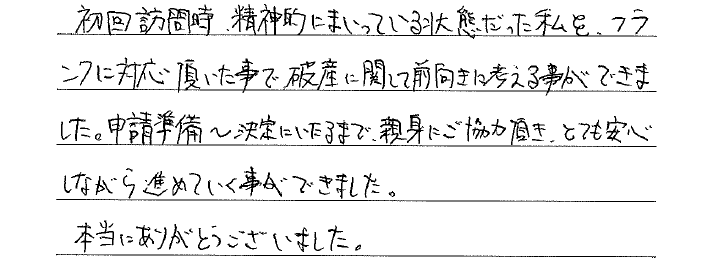 初回訪問時、精神的にまいっている状態だった私を、フラ
ンクに対応頂いた事で破産に関して前向きに考える事ができま
した。申請準備〜決定にいたるまで、親身にご協力頂き、とても安心
しながら進めていく事ができました。
本当にありがとうございました。